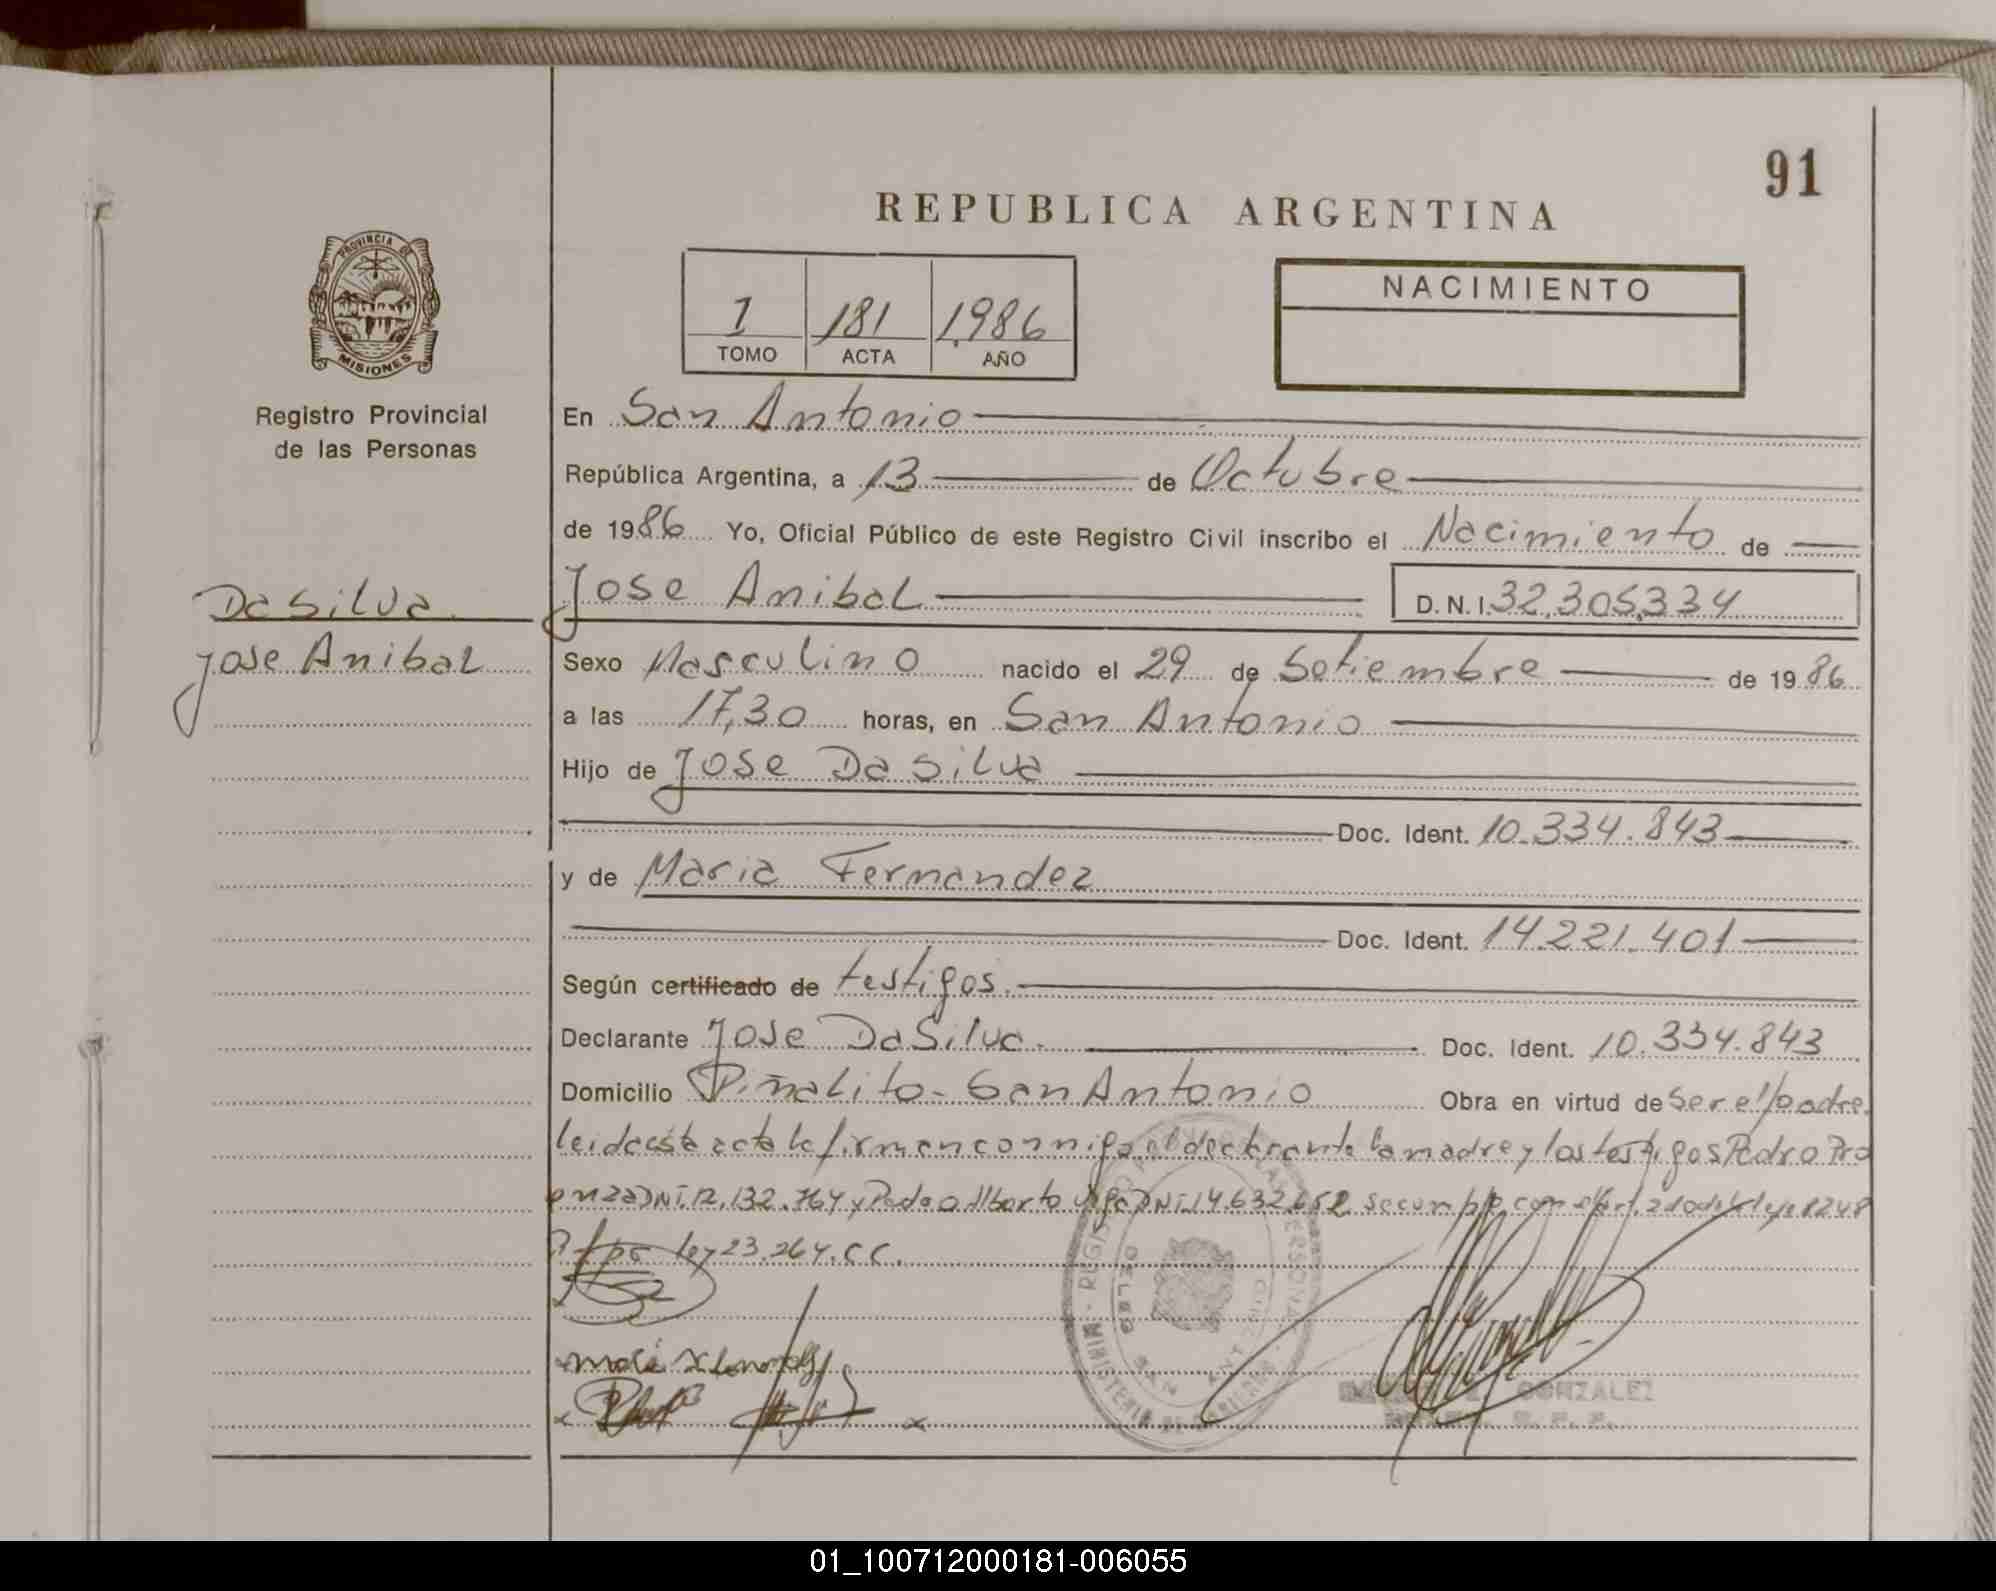 91
REPUBLICA ARGENTINA
PROVINCIA DE
MISIONES
Registro Provincial
de las Personas
1 181 1.986
TOMO ACTA AÑO
NACIMIENTO
En San Antonio
República Argentina, a 13 de Octubre
de 1986 Yo, Oficial Público de este Registro Civil inscribo el Nacimiento de
Jose Anibal D.N.I. 32.305.334
Da Silva.
Jose Anibal
Sexo Masculino nacido el 29 de Setiembre de 1986
a las 17,30 horas, en San Antonio
Hijo de Jose Da Silva
Doc. Ident. 10.334.843
y de Maria Fernandez
Doc. Ident. 14.221.401
Según certificado de testigos.
Declarante Jose Da Silva. Doc. Ident. 10.334.843
Domicilio Piñalito - San Antonio Obra en virtud de Ser el padre.
leida esta acta la firman conmigo el declarante la madre y los testigos Pedro Pro
enza DNI. 12.132.764 y Pedro Alberto DNI. 14.632.652 se cumple con el art. 2
por ley 23.264. C.C.
GONZALEZ
01_100712000181-006055